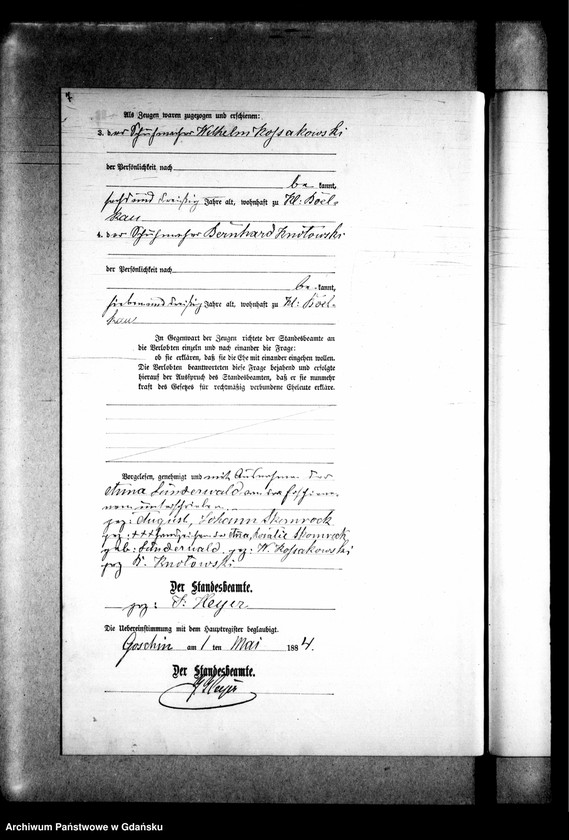 Als Zeugen waren zugezogen und erschienen:
3. der Schuhmacher Wilhelm Kossakowski
der Persönlichkeit nach
be kannt,
sechs und dreißig Jahre alt, wohnhaft zu Kl: Böel-
kau
4. der Schuhmacher Bernhard Knólowski
der Persönlichkeit nach
be kannt,
sieben und dreißig Jahre alt, wohnhaft zu Kl: Böel-
kau
In Gegenwart der Zeugen richtete der Standesbeamte an
die Verlobten einzeln und nach einander die Frage:
ob sie erklären, daß sie die Ehe mit einander eingehen wollen.
Die Verlobten beantworteten diese Frage bejahend und erfolgte
hierauf der Ausspruch des Standesbeamten, daß er sie nunmehr
kraft des Gesetzes für rechtmäßig verbundene Eheleute erkläre.
Vorgelesen, genehmigt und mit Ausnahme der
Anna Sünderwald von den Erschiene-
nen unterschrieben
gez: August, Johann Skomrock
gez: +++ Handzeichen der Anna, Rosalie Skomrock
geb: Sünderwald. gez: W. Kossakowski
gez B. Knólowski
Der Standesbeamte.
gez: F. Heyer
Die Uebereinstimmung mit dem Hauptregister beglaubigt.
Goschin am 1 ten Mai 1884.
Der Standesbeamte.
Heyer
Archiwum Państwowe w Gdańsku